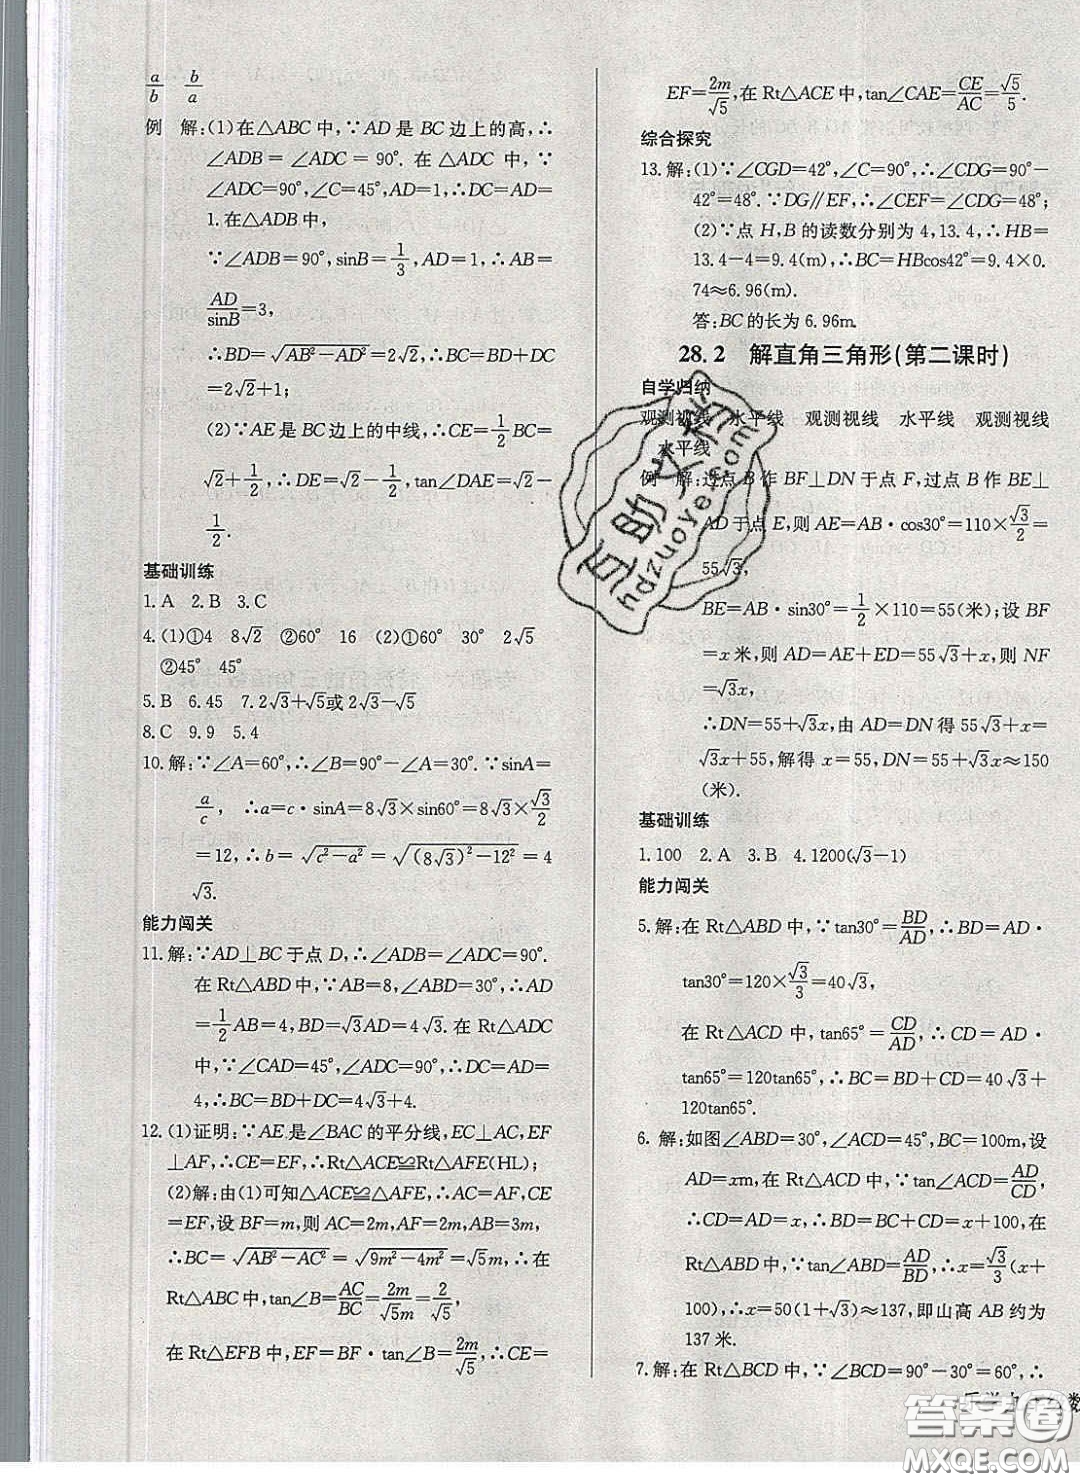 a/b  b/a
例 解:(1)在△ABC中,∵AD是BC边上的高,∴
∠ADB=∠ADC=90°.在△ADC中,∵
∠ADC=90°,∠C=45°,AD=1,∴DC=AD=
1.在△ADB中,
∵∠ADB=90°,sinB=1/3,AD=1,∴AB=
AD/sinB=3,
∴BD=√(AB²-AD²)=2√2,∴BC=BD+DC=
2√2+1;
(2)∵AE是BC边上的中线,∴CE=1/2BC=
√2+1/2,∴DE=√2-1/2,tan∠DAE=√2-
1/2.
基础训练
1.A 2.B 3.C
4.(1)①4 8√2 ②60° 16 (2)①60° 30° 2√5
②45° 45°
5.B 6.45 7.2√3+√5或2√3-√5
8.C 9.9 5.4
10.解:∵∠A=60°,∴∠B=90°-∠A=30°.∵sinA=
a/c, ∴a=c·sinA=8√3×sin60°=8√3×√3/2
=12,∴b=√(c²-a²)=√((8√3)²-12²)=4
√3.
能力闯关
11.解:∵AD⊥BC于点D,∴∠ADB=∠ADC=90°.
在Rt△ABD中,∵AB=8,∠ABD=30°,∴AD
=1/2AB=4,BD=√3AD=4√3.在Rt△ADC
中,∵∠CAD=45°,∠ADC=90°,∴DC=AD=
4,∴BC=BD+DC=4√3+4.
12.(1)证明:∵AE是∠BAC的平分线,EC⊥AC,EF
⊥AF,∴CE=EF,∴Rt△ACE≌Rt△AFE(HL);
(2)解:由(1)可知△ACE≌△AFE,∴AC=AF,CE
=EF,设BF=m,则AC=2m,AF=2m,AB=3m,
∴BC=√(AB²-AC²)=√(9m²-4m²)=√5m,∴在
Rt△ABC中,tan∠B=AC/BC=2m/√5m=2/√5,
在Rt△EFB中,EF=BF·tan∠B=2m/√5,∴CE=
EF=2m/√5,在Rt△ACE中,tan∠CAE=CE/AC=√5/5.
综合探究
13.解:(1)∵∠CGD=42°,∠C=90°,∴∠CDG=90°-
42°=48°.∵DG∥EF,∴∠CEF=∠CDG=48°;
(2)∵点H,B的读数分别为4,13.4,∴HB=
13.4-4=9.4(m),∴BC=HBcos42°=9.4×0.
74≈6.96(m).
答:BC的长为6.96m.
28.2 解直角三角形(第二课时)
自学归纳
观测视线 水平线 观测视线 水平线 观测视线
水平线
例 解:过点B作BF⊥DN于点F,过点B作BE⊥
AD于点E,则AE=AB·cos30°=110×√3/2=
55√3,
BE=AB·sin30°=1/2×110=55(米);设BF
=x米,则AD=AE+ED=55√3+x,则NF
=√3x,
∴DN=55+√3x,由AD=DN得55√3+x=
√3x+55,解得x=55,DN=55+√3x≈150
(米).
基础训练
1.100 2.A 3.B 4.1200(√3-1)
能力闯关
5.解:在Rt△ABD中,∵tan30°=BD/AD,∴BD=AD·
tan30°=120×√3/3=40√3,
在Rt△ACD中,tan65°=CD/AD,∴CD=AD·
tan65°=120tan65°,∴BC=BD+CD=40√3+
120tan65°.
6.解:如图∠ABD=30°,∠ACD=45°,BC=100m,设
AD=xm,在Rt△ACD中,∵tan∠ACD=AD/CD,
∴CD=AD=x,∴BD=BC+CD=x+100,在
Rt△ABD中,∵tan∠ABD=AD/BD,∴x=√3/3(x+
100),∴x=50(√3+1)≈137,即山高AB约为
137米.
7.解:在Rt△BCD中,∵∠BCD=90°-30°=60°,∴
互助文档
hdzuoye.com
答案圈
MXQE.COM